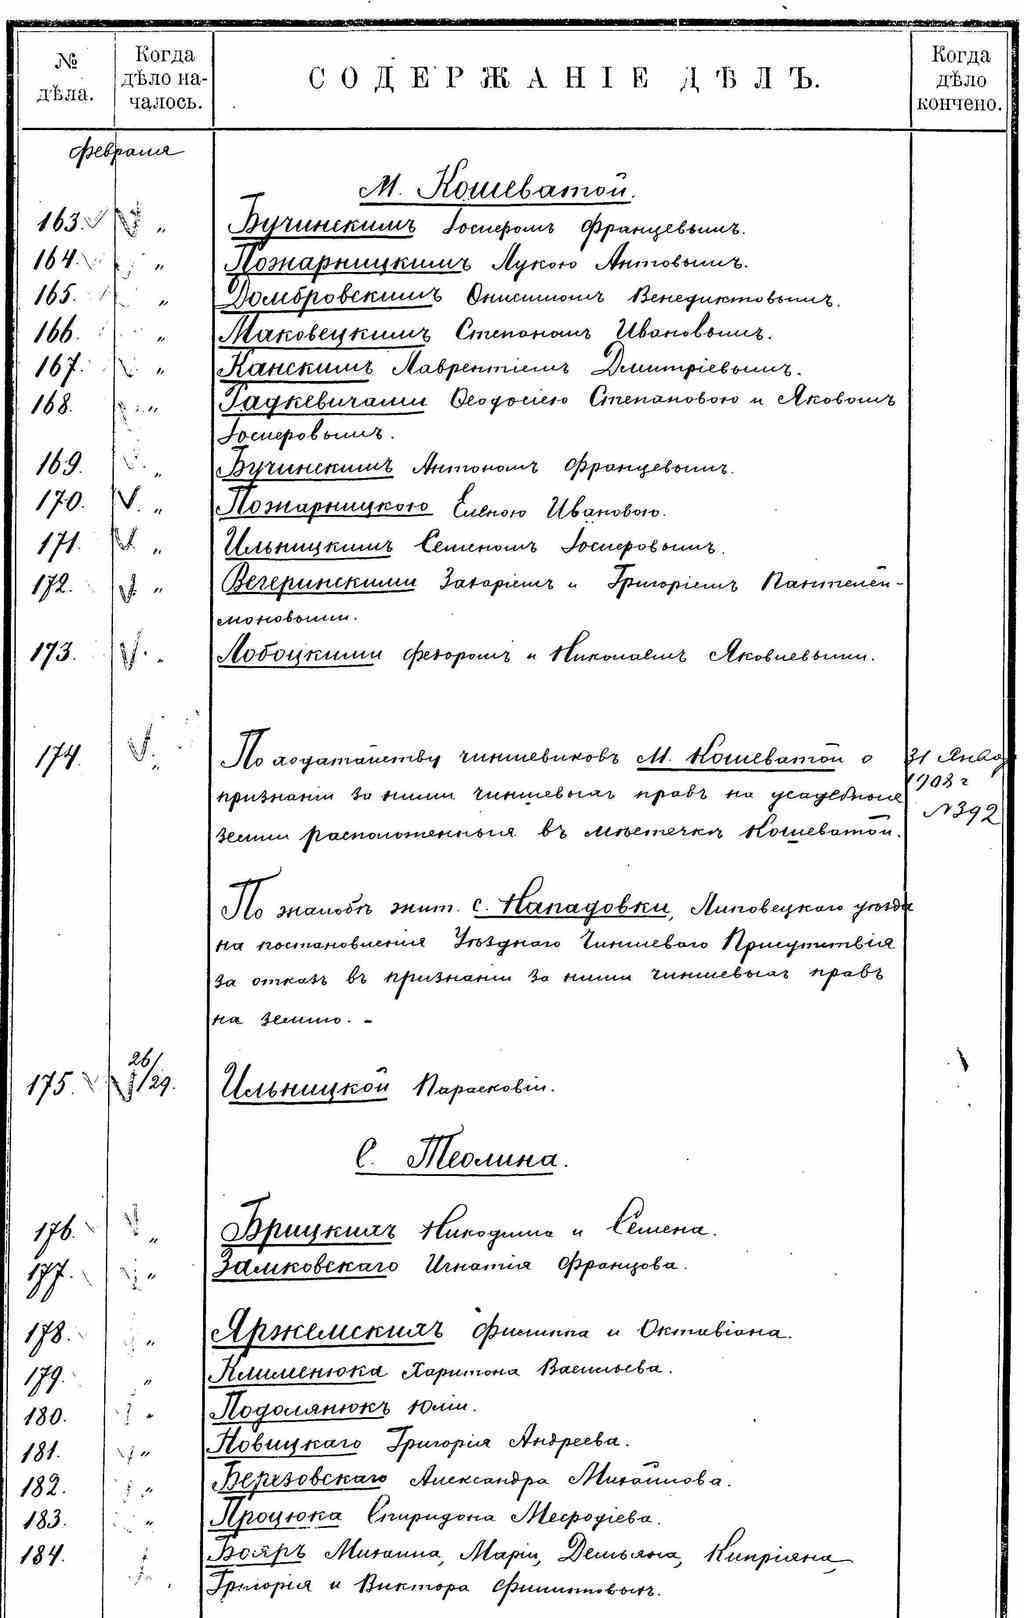 № дѣла.
Когда дѣло началось.
СОДЕРЖАНІЕ ДѢЛЪ.
Когда дѣло кончено.
февраля
М. Кошеватой.
163. „ Бучинскимъ Іосифомъ Францевымъ.
164. „ Пожарницкимъ Лукою Антовымъ.
165. „ Домбровскимъ Онисимомъ Венедиктовымъ.
166. „ Маковецкимъ Степаномъ Ивановымъ.
167. „ Канскимъ Лаврентіемъ Дмитріевымъ.
168. „ Радкевичами Ѳеодосіею Степановою и Яковомъ
Іосифовымъ.
169. „ Бучинскимъ Антономъ Францевымъ.
170. „ Пожарницкою Еленою Ивановою.
171. „ Ильницкимъ Семеномъ Іосифовымъ.
172. „ Вегеринскими Захаріемъ и Григоріемъ Пантелей-
моновыми.
173. „ Лобоцкими Федоромъ и Николаемъ Яковлевыми.
174. „ По ходатайству чиншевиковъ М. Кошеватой о 31 Январ
признаніи за ними чиншевыхъ правъ на усадебныя 1908 г
земли расположенныя въ мѣстечкѣ Кошеватой. №392
По жалобѣ жит. с. Нападовки, Липовецкаго уѣзда
на постановленія Уѣзднаго Чиншеваго Присутствія
за отказъ въ признаніи за ними чиншевыхъ правъ
на землю. -
175. 26/29. Ильницкой Парасковіи.
С. Теолина.
176. „ Брицкихъ Никодима и Семена.
177. „ Замковскаго Игнатія Францова.
178. „ Яржемскихъ Филиппа и Октавіана.
179. „ Клименюка Харитона Васильева.
180. „ Подолянюкъ Юліи.
181. „ Новицкаго Григорія Андреева.
182. „ Березовскаго Александра Михайлова.
183. „ Процюка Спиридона Мефодіева.
184. Бояръ Михаила, Маріи, Демьяна, Кипріяна,
„ Григорія и Виктора Филипповыхъ.